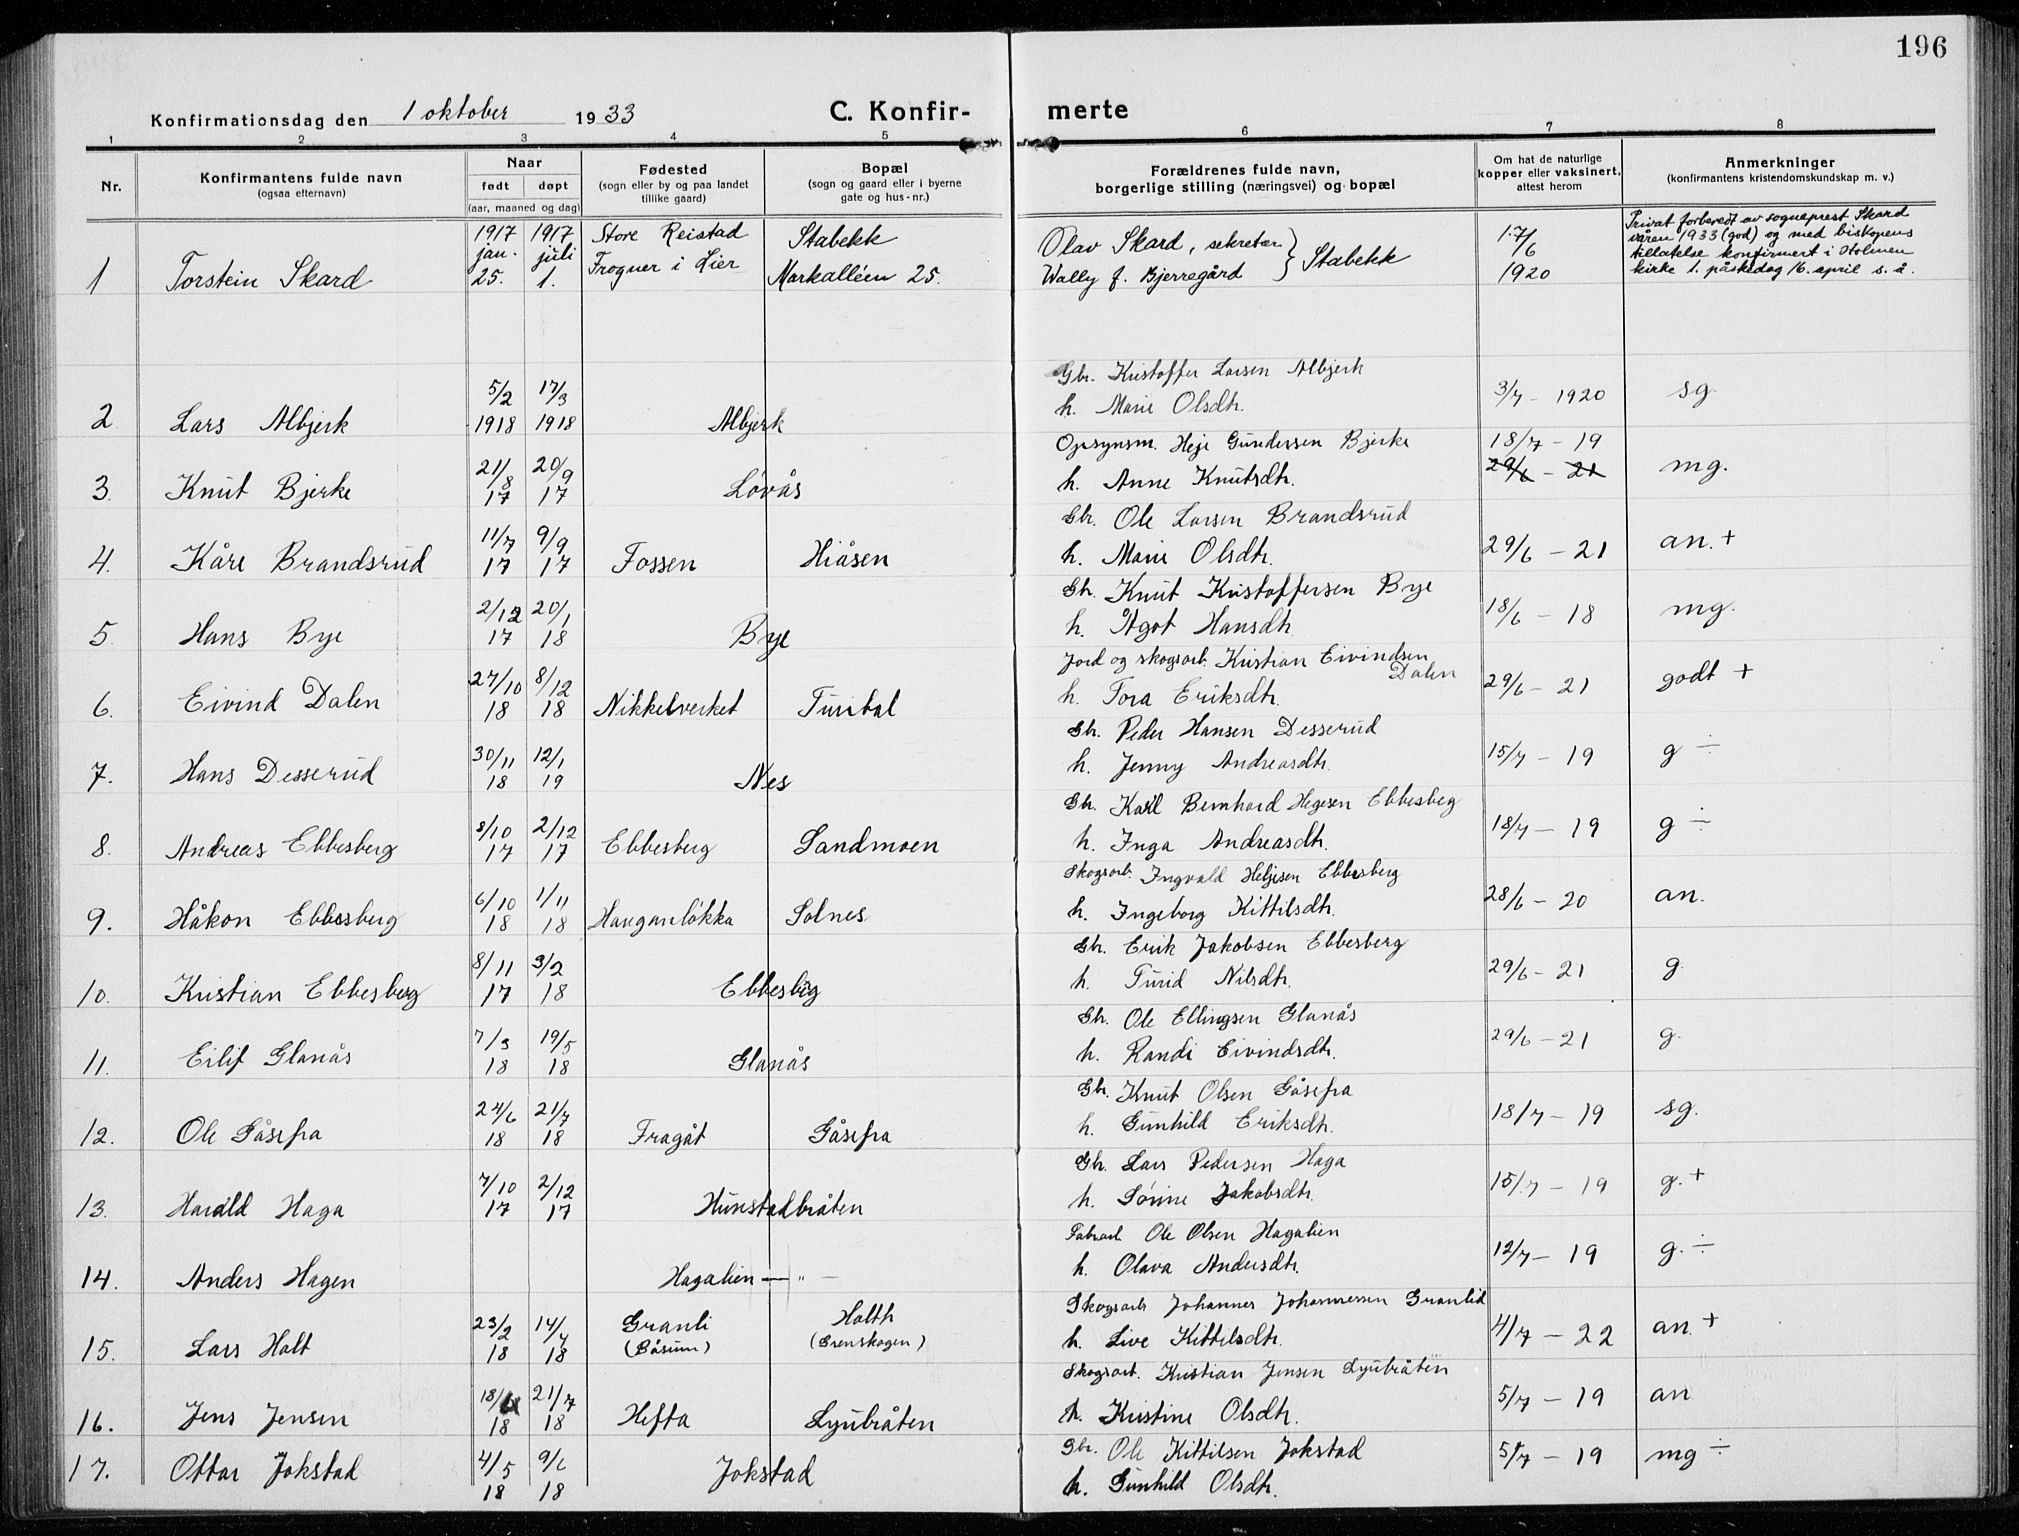 196
Konfirmationsdag den 1 oktober 1933 C. Konfir- merte
1 2 3 4 5 6 7 8
Nr. Konfirmantens fulde navn (ogsaa efternavn) Naar født døpt (aar, maaned og dag) Fødested (sogn eller by og paa landet tillike gaard) Bopæl (sogn og gaard eller i byerne gate og hus-nr.) Forældrenes fulde navn, borgerlige stilling (næringsvei) og bopæl Om hat de naturlige kopper eller vaksinert, attest herom Anmerkninger (konfirmantens kristendomskundskap m. v.)
1917 1917 Store Reistad Stabekk Olav Skard, sekretær 17/6 Privat forberedt av sogneprest Skard
jan. juli Frogner i Lier Stabekk våren 1933 (god) og med biskopens
1 Torstein Skard 25. 1. Markalléen 25. Wally f. Bjerregård 1920 tillatelse konfirmert i Holmen
kirke 1. påskedag 16. april s. å.
5/2 17/3 Gbr. Kristoffer Larsen Albjerk
2 Lars Albjerk 1918 1918 Albjerk h. Marie Olsdtr. 3/7 - 1920 sg.
21/8 20/9 Opsynsm. Helje Gundersen Bjerke 18/7 - 19
3. Knut Bjerke 17 17 Løvås h. Anne Knutsdtr. 29/6 - 21 mg.
11/7 9/9 Gbr. Ole Larsen Brandsrud
4. Kåre Brandsrud 17 17 Fossen Hiåsen h. Marie Olsdtr. 29/6 - 21 an. +
2/12 20/1 Gbr. Knut Kristoffersen Bye
5. Hans Bye 17 18 Bye h. Ågot Hansdtr. 18/6 - 18 mg.
27/10 8/12 Jord og skogsarb. Kristian Eivindsen Dalen
6. Eivind Dalen 18 18 Nikkelverket Turital h. Tora Eriksdtr. 29/6 - 21 godt +
30/11 12/1 Gbr. Peder Hansen Desserud
7. Hans Desserud 18 19 Nes h. Jenny Andreasdtr. 15/7 - 19 g ÷
8/10 2/12 Gbr. Karl Bernhard Hegesen Ebbesberg
8. Andreas Ebbesberg 17 17 Ebbesberg Sandmoen h. Inga Andreasdtr. 18/7 - 19 g ÷
6/10 1/11 Skogsarb. Ingvald Heljesen Ebbesberg
9. Håkon Ebbesberg 18 18 Hauganløkka Solnes h. Ingeborg Kittilsdtr. 28/6 - 20 an.
8/11 3/2 Gbr. Erik Jakobsen Ebbesberg
10. Kristian Ebbesberg 17 18 Ebbesberg h. Turid Nilsdtr. 29/6 - 21 g.
7/3 19/5 Gbr. Ole Ellingsen Glanås
11. Eilif Glanås 18 18 Glanås h. Randi Eivindsdtr. 29/6 - 21 g.
24/6 21/7 Gbr. Knut Olsen Gåsefra
12. Ole Gåsefra 18 18 Fragåt Gåsefra h. Gunhild Eriksdtr. 18/7 - 19 sg.
7/10 2/12 Gbr. Lars Pedersen Haga
13. Harald Haga 17 17 Hunstadbråten h. Sørine Jakobsdtr. 15/7 - 19 g. +
Fabrarb. Ole Olsen Hagalien
14. Anders Hagen Hagalien — „ — h. Olava Andersdtr. 12/7 - 19 g. ÷
23/2 14/4 Granli Holth Skogsarb Johannes Johannessen Granlid
15. Lars Holt 18 18 (Båsum) (Grenskogen) h. Live Kittilsdtr. 4/7 - 22 an. +
18/6 21/7 Skogsarb. Kristian Jensen Ljubråten
16. Jens Jensen 18 18 Hefta Ljubråten h. Kristine Olsdtr. 5/7 - 19 an
4/5 9/6 Gbr. Ole Kittilsen Jokstad
17. Ottar Jokstad 18 18 Jokstad h. Gunhild Olsdtr. 5/7 - 19 mg ÷